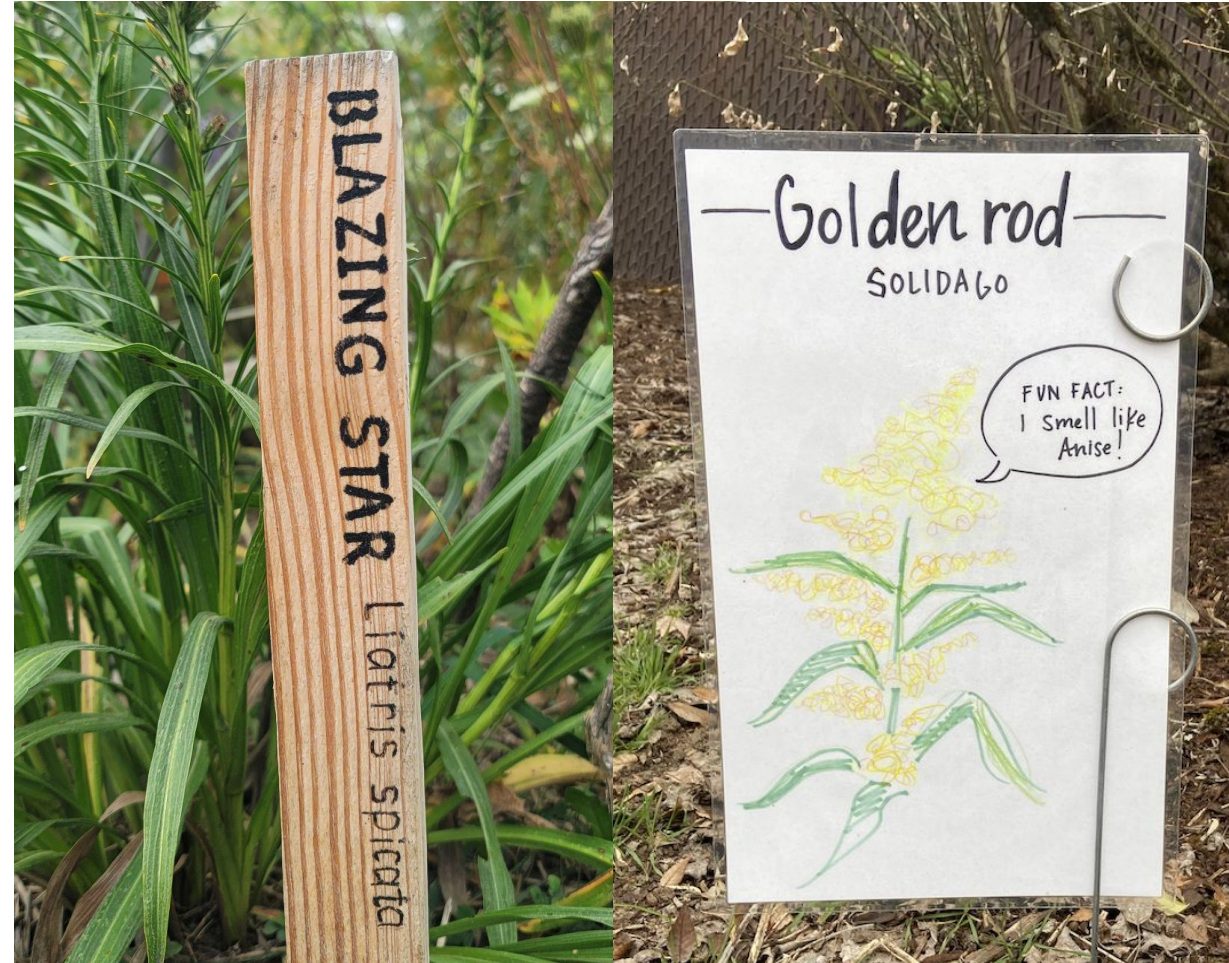 BLAZING STAR Liatris spicata
Golden rod
SOLIDAGO
FUN FACT:
I smell like
Anise!